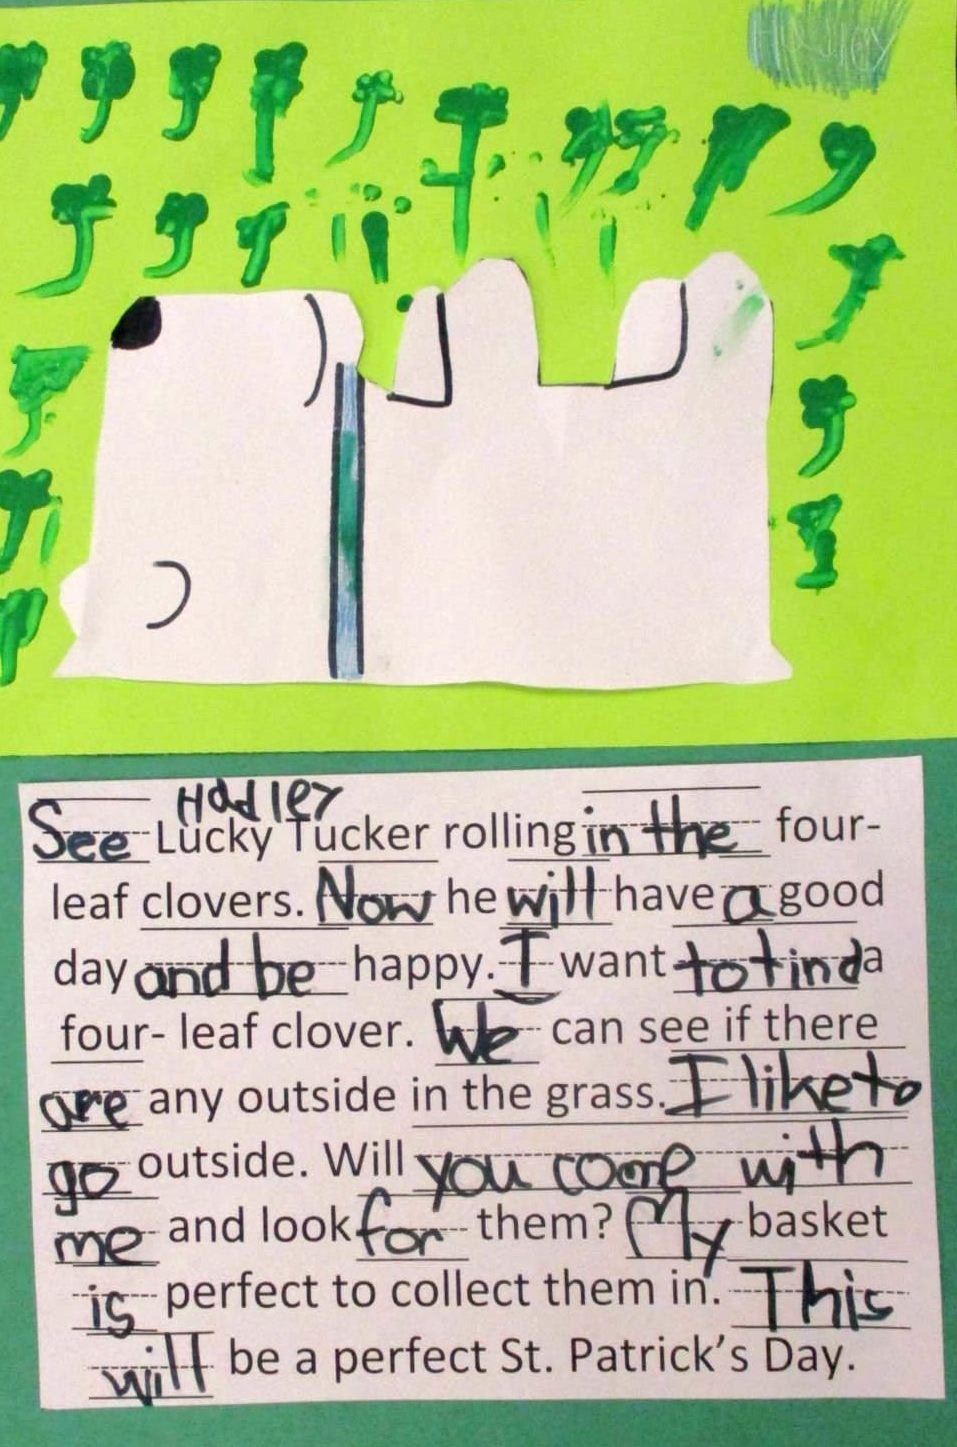 Hadley
See Lucky Tucker rolling in the four-
leaf clovers. Now he will have a good
day and be happy. I want to tind a
four- leaf clover. We can see if there
are any outside in the grass. I like to
go outside. Will you come with
me and look for them? My basket
is perfect to collect them in. This
will be a perfect St. Patrick's Day.